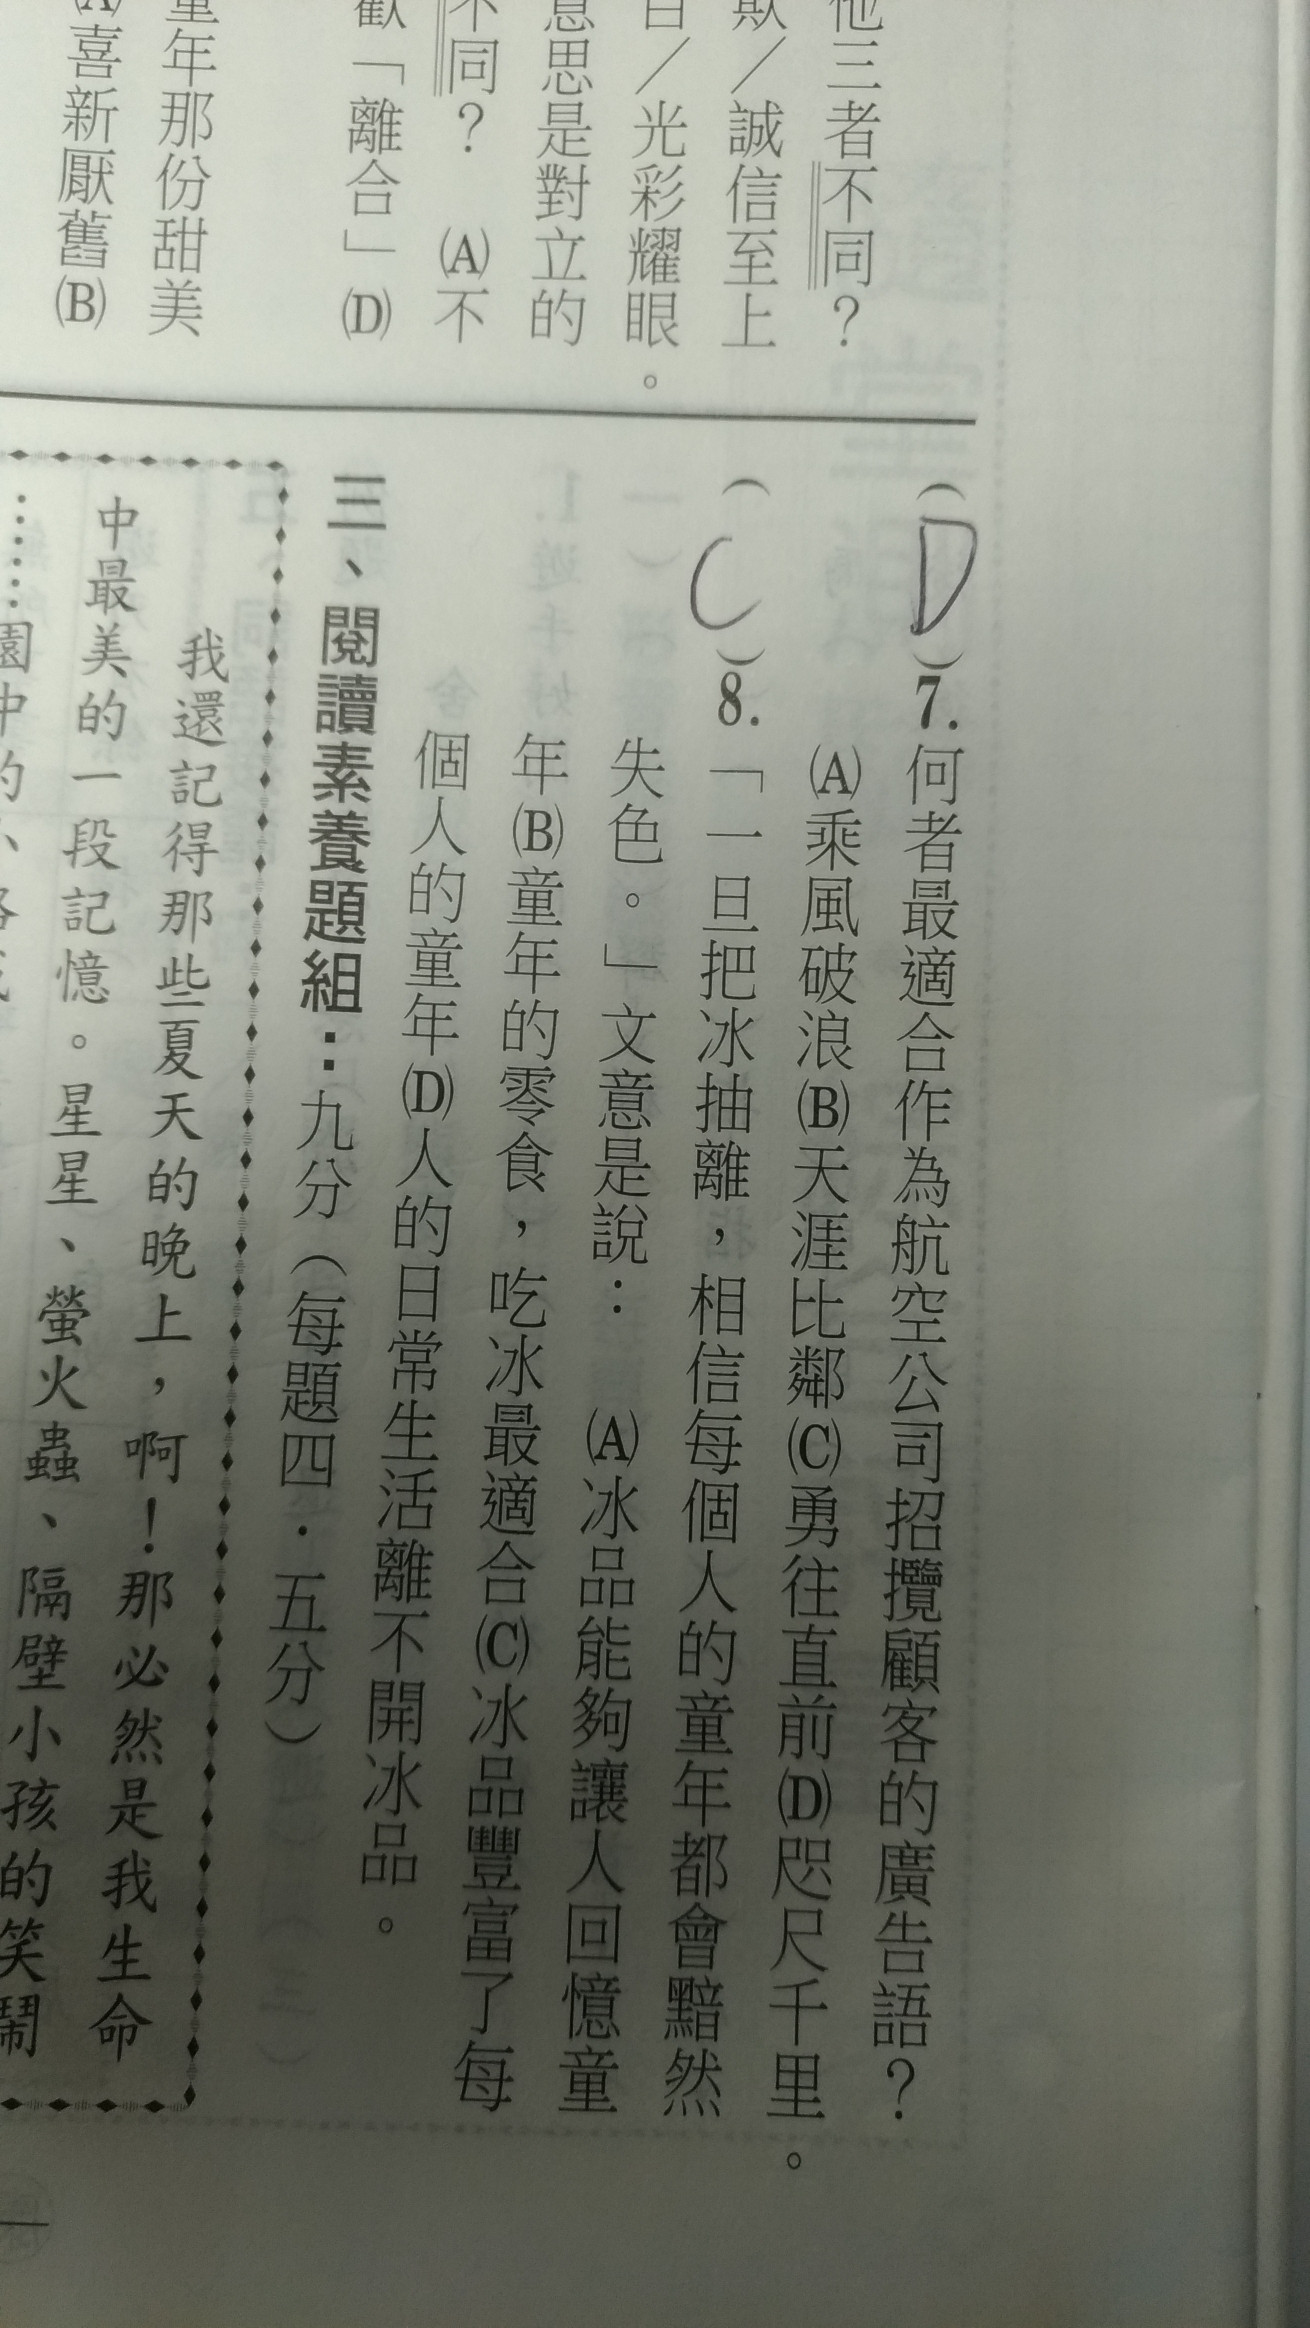 他三者不同？
欺／誠信至上
白／光彩耀眼。
意思是對立的
不同？　(A)不
歡「離合」(D)
童年那份甜美
(A)喜新厭舊(B)
（D）7.何者最適合作為航空公司招攬顧客的廣告語？
(A)乘風破浪(B)天涯比鄰(C)勇往直前(D)咫尺千里。
（C）8.「一旦把冰抽離，相信每個人的童年都會黯然
失色。」文意是說：　(A)冰品能夠讓人回憶童
年(B)童年的零食，吃冰最適合(C)冰品豐富了每
個人的童年(D)人的日常生活離不開冰品。
三、閱讀素養題組：九分（每題四．五分）
我還記得那些夏天的晚上，啊！那必然是我生命
中最美的一段記憶。星星、螢火蟲、隔壁小孩的笑鬧
……園中的小